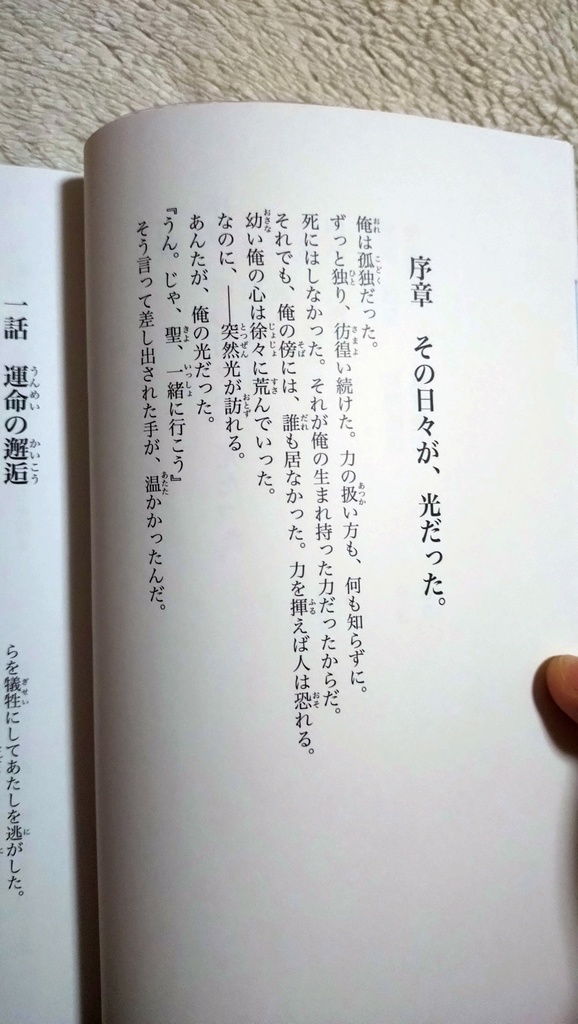 序章　その日々が、光だった。
俺は孤独だった。
ずっと独り、彷徨い続けた。力の扱い方も、何も知らずに。
死にはしなかった。それが俺の生まれ持った力だったからだ。
それでも、俺の傍には、誰も居なかった。力を揮えば人は恐れる。
幼い俺の心は徐々に荒んでいった。
なのに、――突然光が訪れる。
あんたが、俺の光だった。
『うん。じゃ、聖、一緒に行こう』
そう言って差し出された手が、温かかったんだ。
一話　運命の邂逅
らを犠牲にしてあたしを逃がした。